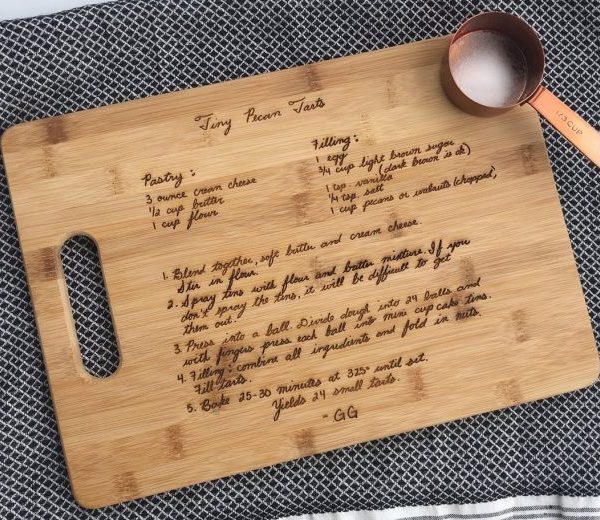 Tiny Pecan Tarts
Pastry:
3 ounce cream cheese
1/2 cup butter
1 cup flour
Filling:
1 egg
3/4 cup light brown sugar
(dark brown is ok)
1 tsp. vanilla
1/4 tsp. salt
1 cup pecans or walnuts (chopped)
1. Blend together, soft butter and cream cheese.
Stir in flour.
2. Spray tins with flour and butter mixture. If you
don't spray the tins, it will be difficult to get
them out.
3. Press into a ball. Divide dough into 24 balls and
with fingers press each ball into mini cupcake tins.
4. Filling: combine all ingredients and fold in nuts.
Fill tarts.
5. Bake 25-30 minutes at 325° until set.
Yields 24 small tarts.
- GG
1/3 CUP